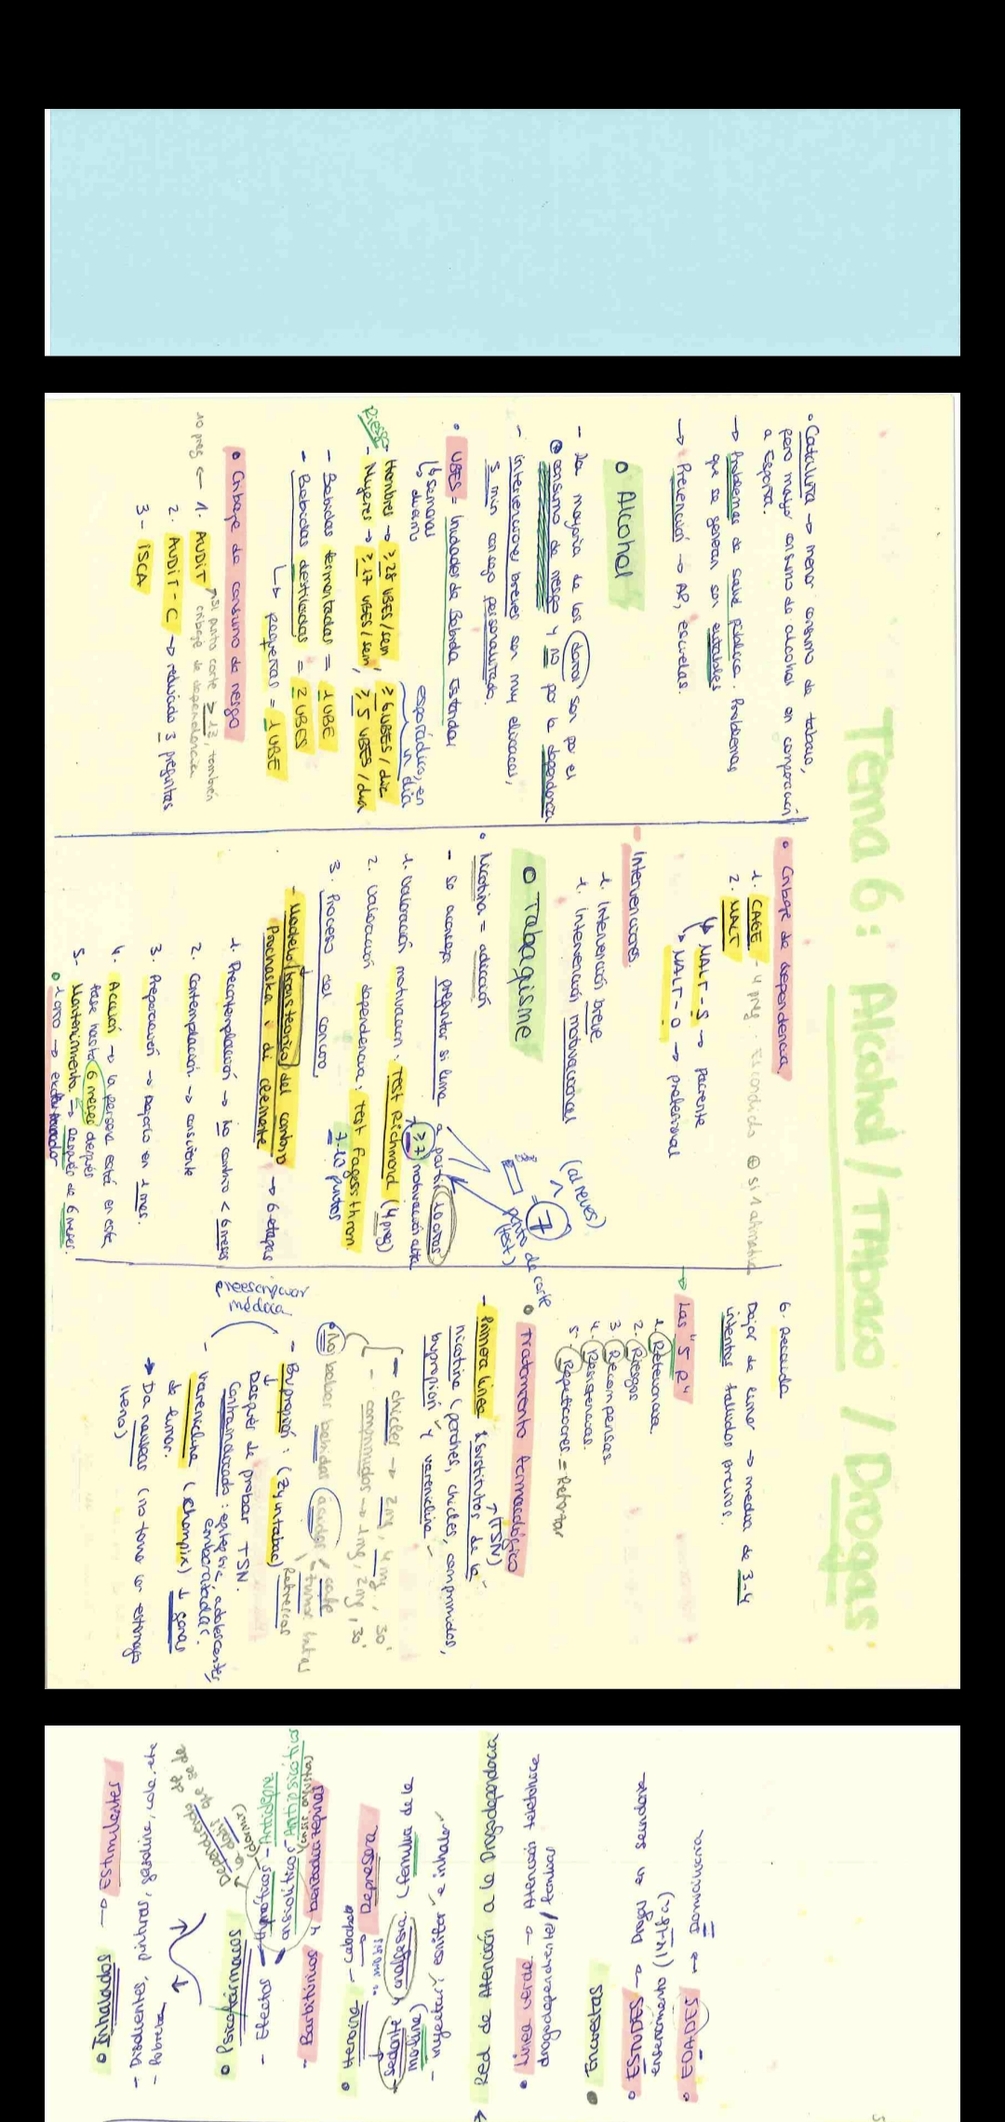 Tema 6: Alcohol / Tabaco / Drogas
• Cataluña → menor consumo de tabaco,
pero mayor consumo de alcohol en comparación
a España.
→ Problemas de salud pública. Problemas
que se generan son evitables
→ Prevención → AP, escuelas.
• Alcohol
- La mayoría de los daños son por el
⊕ consumo de riesgo y no por la dependencia
- Intervenciones breves son muy eficaces,
5 min consejo personalizado.
• UBES = Unidades de Bebida Estándar
↳ semanal
↳ diario
esporádico, en
un día
Riesgo
- Hombres → ≥ 28 UBES/sem, ≥ 6 UBES/día
- Mujeres → ≥ 17 UBES/sem, ≥ 5 UBES/día
- Bebidas fermentadas = 1 UBE
- Bebidas destiladas = 2 UBES
↳ pequeñas = 1 UBE
• Cribaje de consumo de riesgo
10 preg ← 1. AUDIT → si punto corte ≥ 13, también
cribaje de dependencia
2. AUDIT-C → reducido 3 preguntas
3- ISCA
• Cribaje de dependencia
1. CAGE - 4 preg. Escondido ⊕ si 1 afirmativa
2. MALT
↳ MALT-S → paciente
↳ MALT-O → profesional
- Intervenciones
1. Intervención breve
1. Intervención motivacional
• Tabaquisme
• Nicotina = adicción
- Se aconseja preguntar si fuma a partir 10 años
1. Valoración motivación: Test Richmond (4 preg)
≥7) motivación alta
2. Valoración dependencia: Test Fagerstrom.
7-10 puntos
(al revés)
= 7
punto de corte
(test)
3. Proceso del cambio
- Modelo transteórico del cambio → 6 etapas
Prochaska i di clemente
1. Precontemplación → no cambio < 6 meses
2. Contemplación → consciente
3. Preparación → dejarlo en 1 mes.
4. Acción → la persona está en esta
fase hasta 6 meses después
5- Mantenimiento → después de 6 meses.
• 1 año → exfumador
6. Recaída
Dejar de fumar → media de 3-4
intentos fallidos previos.
→ Las "5 R"
1. Relevancia
2. Riesgos
3. Recompensas
4. Resistencias.
5. Repeticiones = Reforzar
• Tratamiento farmacológico
- Primera línea: Sustitutos de la
(TSN)
nicotina (parches, chicles, comprimidos,
bupropión y vareniclina -
- chicles → 2mg, 4mg, 30'
- comprimidos → 1mg, 2mg, 30'
• No beber bebidas ácidas (café
Refrescos
preescripción
médica
- Bupropión: (Zyntabac)
Después de probar TSN.
Contraindicado: epilepsia, adolescentes,
embarazadas.
- Vareniclina (Champix) ↓ ganas
de fumar.
→ Da náuseas (no tomar con estómago
lleno)
• Encuestas
• ESTUDES → Drogas en secundaria
• EDADES → Domiciliaria
← Red de Atención a la Drogodependencia
• Línea verde → Atención telefónica
drogodependientes / familias
• Heroína - caballo
Depresora
- Sedante y analgésica (familia de la
morfina)
- inyectar, esnifar e inhalar
• Psicofármacos
- Efectos - Hipnóticos - Antidepre
ansiolíticos - Antipsicóticos
(dormir)
- Barbitúricos y benzodiazepinas
• Inhalados ← Estimulantes
- Disolventes, pinturas, gasolina, cola, etc
- Pobreza